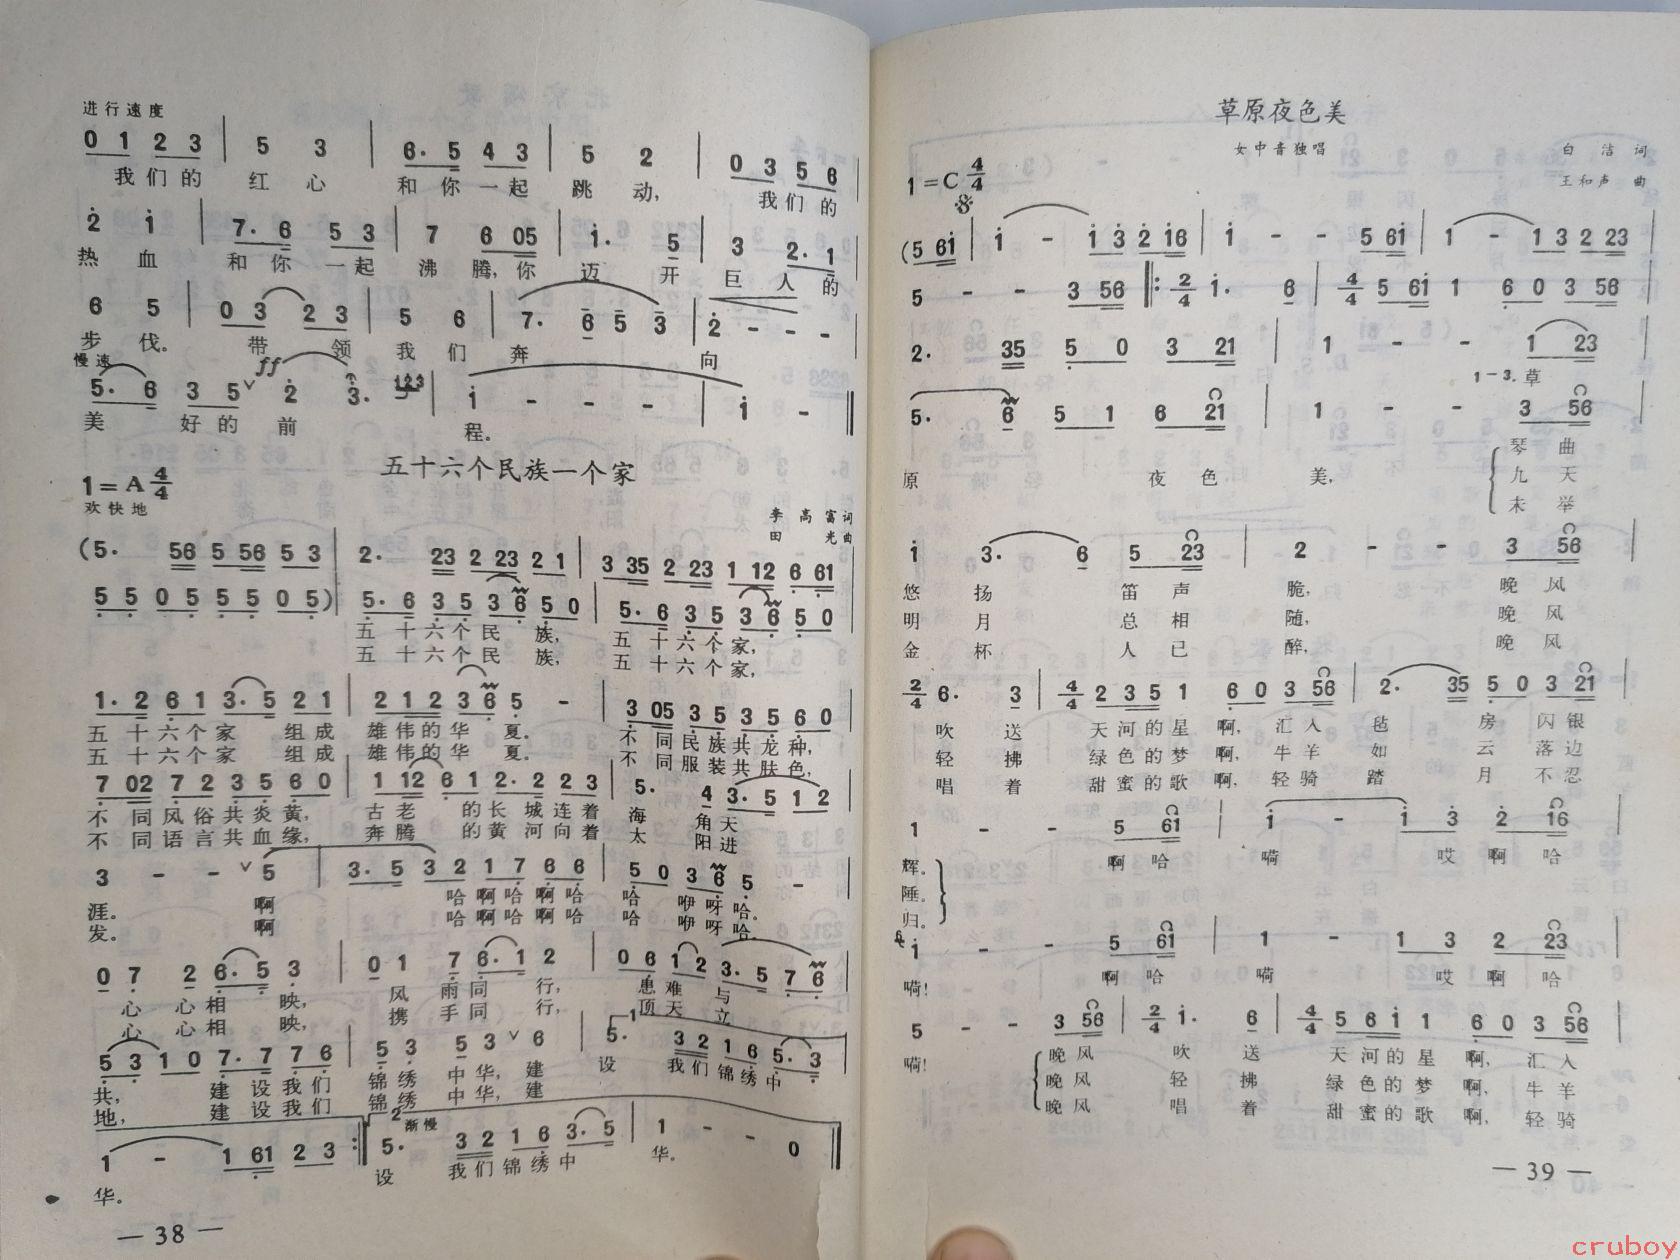 进行速度
0 1 2 3 | 5 3 | 6· 5 4 3 | 5 2 | 0 3 5 6
我们的 红 心 和你一起 跳 动, 我们的
2 1 | 7· 6 5 3 | 7 6 05 | 1· 5 | 3 2· 1
热 血 和你一起 沸 腾,你 迈 开 巨 人 的
6 5 | 0 3 2 3 | 5 6 | 7· 6 5 3 | 2 - - -
步 伐。 带 领 我 们 奔 向
慢速 ff
5· 6 3 5 ∨ 2 3· 123 | 1 - - - | 1 - ‖
美 好的 前 程。
五十六个民族一个家
1=A 4/4
欢快地
李高富 词
田光 曲
(5· 56 5 56 5 3 | 2· 23 2 23 2 1 | 3 35 2 23 1 12 6 61
5 5 0 5 5 5 0 5) | 5· 6 3 5 3 6 5 0 | 5· 6 3 5 3 6 5 0
五十六个民 族, 五十六个家,
五十六个民 族, 五十六个家,
1· 2 6 1 3· 5 2 1 | 2 1 2 3 6 5 - | 3 05 3 5 3 5 6 0
五十六个家 组成 雄伟的华 夏。 不同民族共龙种,
五十六个家 组成 雄伟的华 夏。 不同服装共肤色,
7 02 7 2 3 5 6 0 | 1 12 6 1 2· 2 2 3 | 5· 4 3· 5 1 2
不同风俗共炎黄, 古老 的长城连着 海 角天
不同语言共血缘, 奔腾 的黄河向着 太 阳进
3 - - ∨ 5 | 3· 5 3 2 1 7 6 6 | 5 0 3 6 5 -
涯。 啊 哈啊哈啊哈 哈 咿呀哈。
发。 啊 哈啊哈啊哈 哈 咿呀哈。
0 7 2 6· 5 3 | 0 1 7 6· 1 2 | 0 6 1 2 3· 5 7 6
心 心相 映, 风 雨同 行, 患难 与
心 心相 映, 携 手同 行, 顶天 立
5 3 1 0 7· 7 7 6 | 5 3 5 3 ∨ 6 | 1 5· 3 2 1 6 5· 3
共, 建设我们 锦绣中华,建 设 我们锦绣中
地, 建设我们 锦绣中华,建
1 - 1 61 2 3 :‖ 2 渐慢 5· 3 2 1 6 3· 5 | 1 - - 0 ‖
华。 设 我们锦绣中 华。
— 38 —
草原夜色美
女中音独唱
白洁 词
王和声 曲
1=C 4/4
(5 61 | 1 - 1 3 2 16 | 1 - - 5 61 | 1 - 1 3 2 23
5 - - 3 56 ‖: 2/4 1· 6 | 4/4 5 61 1 6 0 3 56
2· 35 5 0 3 21 | 1 - - 1 23
1-3. 草
5· 6 5 1 6 21 | 1 - - 3 56
原 夜 色 美, 琴 曲
九 天
未 举
1 3· 6 5 23 | 2 - - 3 56
悠 扬 笛 声 脆, 晚 风
明 月 总 相 随, 晚 风
金 杯 人 已 醉, 晚 风
2/4 6· 3 | 4/4 2 3 5 1 6 0 3 56 | 2· 35 5 0 3 21
吹 送 天河的星 啊,汇入 毡 房 闪银
轻 拂 绿色的梦 啊,牛羊 如 云 落边
唱 着 甜蜜的歌 啊,轻骑 踏 月 不忍
1 - - 5 61 | 1 - 1 3 2 16
辉。 啊 哈 嗬 哎 啊 哈
陲。
归。
1 - - 5 61 | 1 - 1 3 2 23
嗬! 啊 哈 嗬 哎 啊 哈
5 - - 3 56 | 2/4 1· 6 | 4/4 5 6 1 1 6 0 3 56
嗬! 晚风 吹 送 天河的星 啊, 汇 入
晚风 轻 拂 绿色的梦 啊, 牛 羊
晚风 唱 着 甜蜜的歌 啊, 轻 骑
— 39 —
cruboy